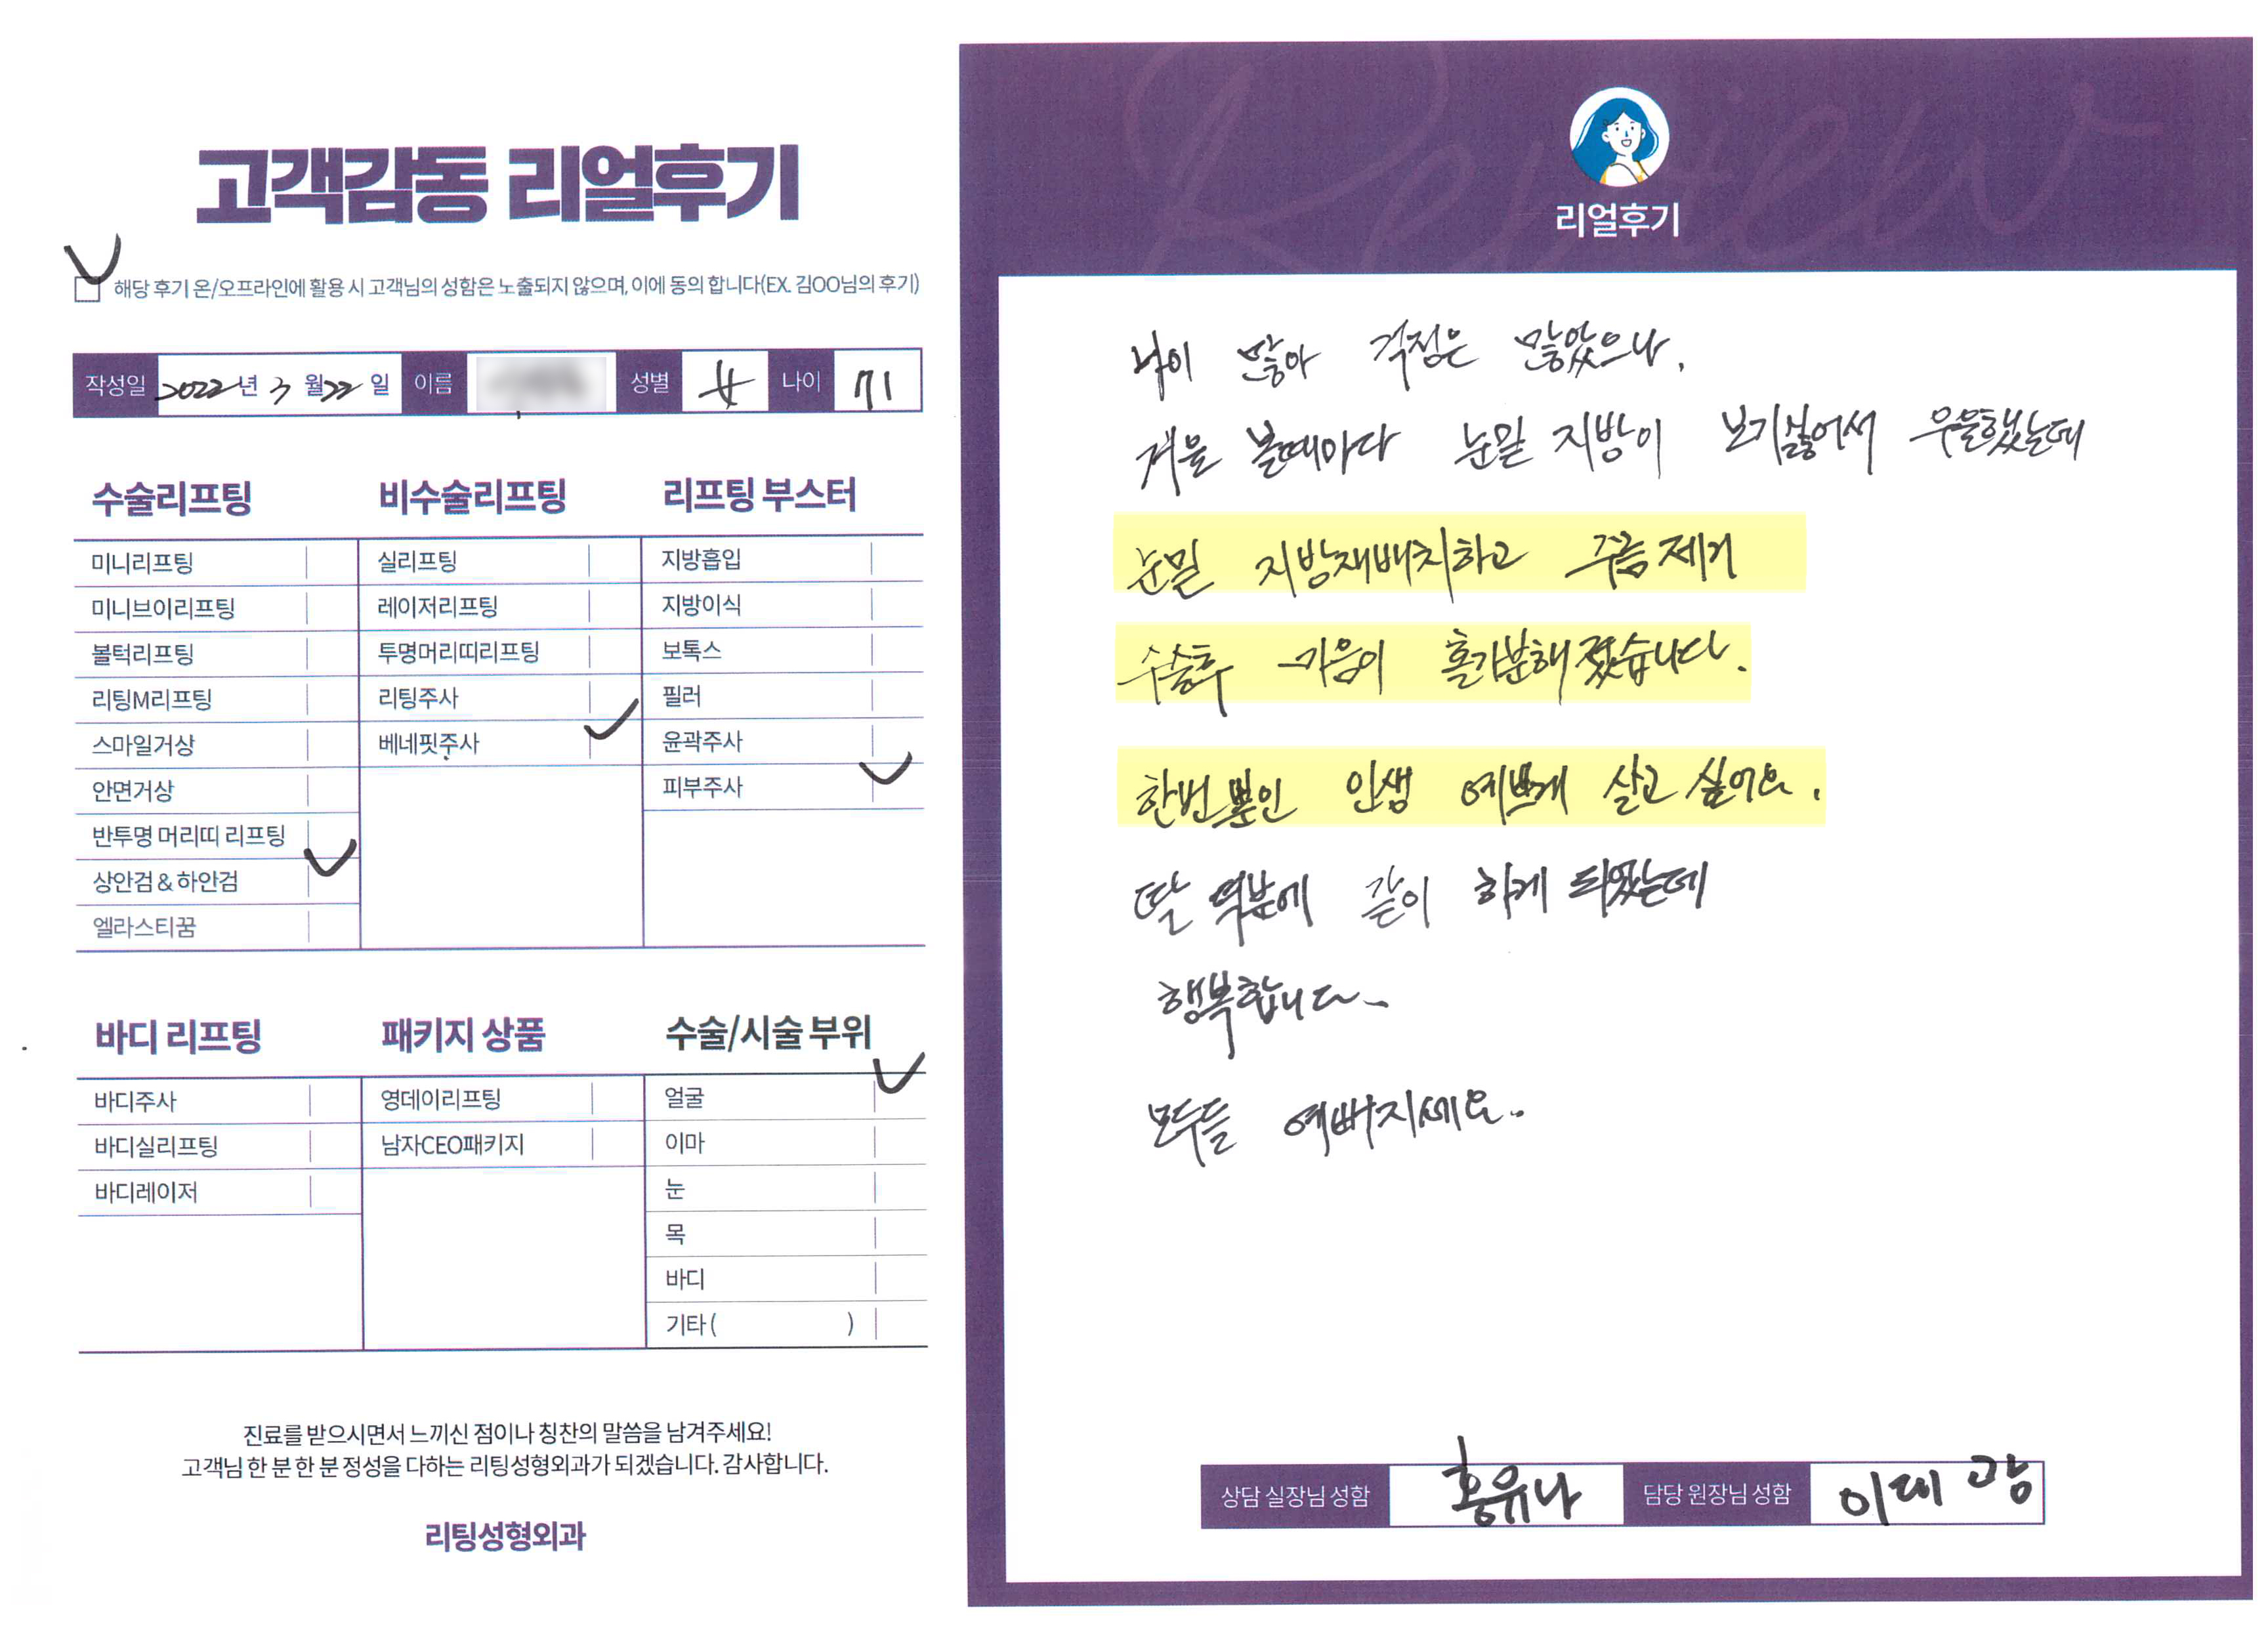 고객감동 리얼후기
해당 후기 온/오프라인에 활용 시 고객님의 성함은 노출되지 않으며, 이에 동의 합니다(EX. 김OO님의 후기)
작성일 2022년 3월 22일 이름 성별 女 나이 71
수술리프팅
미니리프팅
미니브이리프팅
볼턱리프팅
리팅M리프팅
스마일거상
안면거상
반투명 머리띠 리프팅
상안검 & 하안검
엘라스티꿈
비수술리프팅
실리프팅
레이저리프팅
투명머리띠리프팅
리팅주사
베네핏주사
리프팅 부스터
지방흡입
지방이식
보톡스
필러
윤곽주사
피부주사
바디 리프팅
바디주사
바디실리프팅
바디레이저
패키지 상품
영데이리프팅
남자CEO패키지
수술/시술 부위
얼굴
이마
눈
목
바디
기타 ( )
진료를 받으시면서 느끼신 점이나 칭찬의 말씀을 남겨주세요!
고객님 한 분 한 분 정성을 다하는 리팅성형외과가 되겠습니다. 감사합니다.
리팅성형외과
Review
리얼후기
많아 걱정은 많았으나,
거울 볼때마다 눈밑 지방이 보기싫어서 우울했는데
눈밑 지방재배치하고 주름제거
수술후 마음이 홀가분해졌습니다.
한번뿐인 인생 예쁘게 살고 싶어요.
딸 덕분에 같이 하게 되었는데
행복합니다~
모두들 예뻐지세요.
상담 실장님 성함 홍유나 담당 원장님 성함 이대광